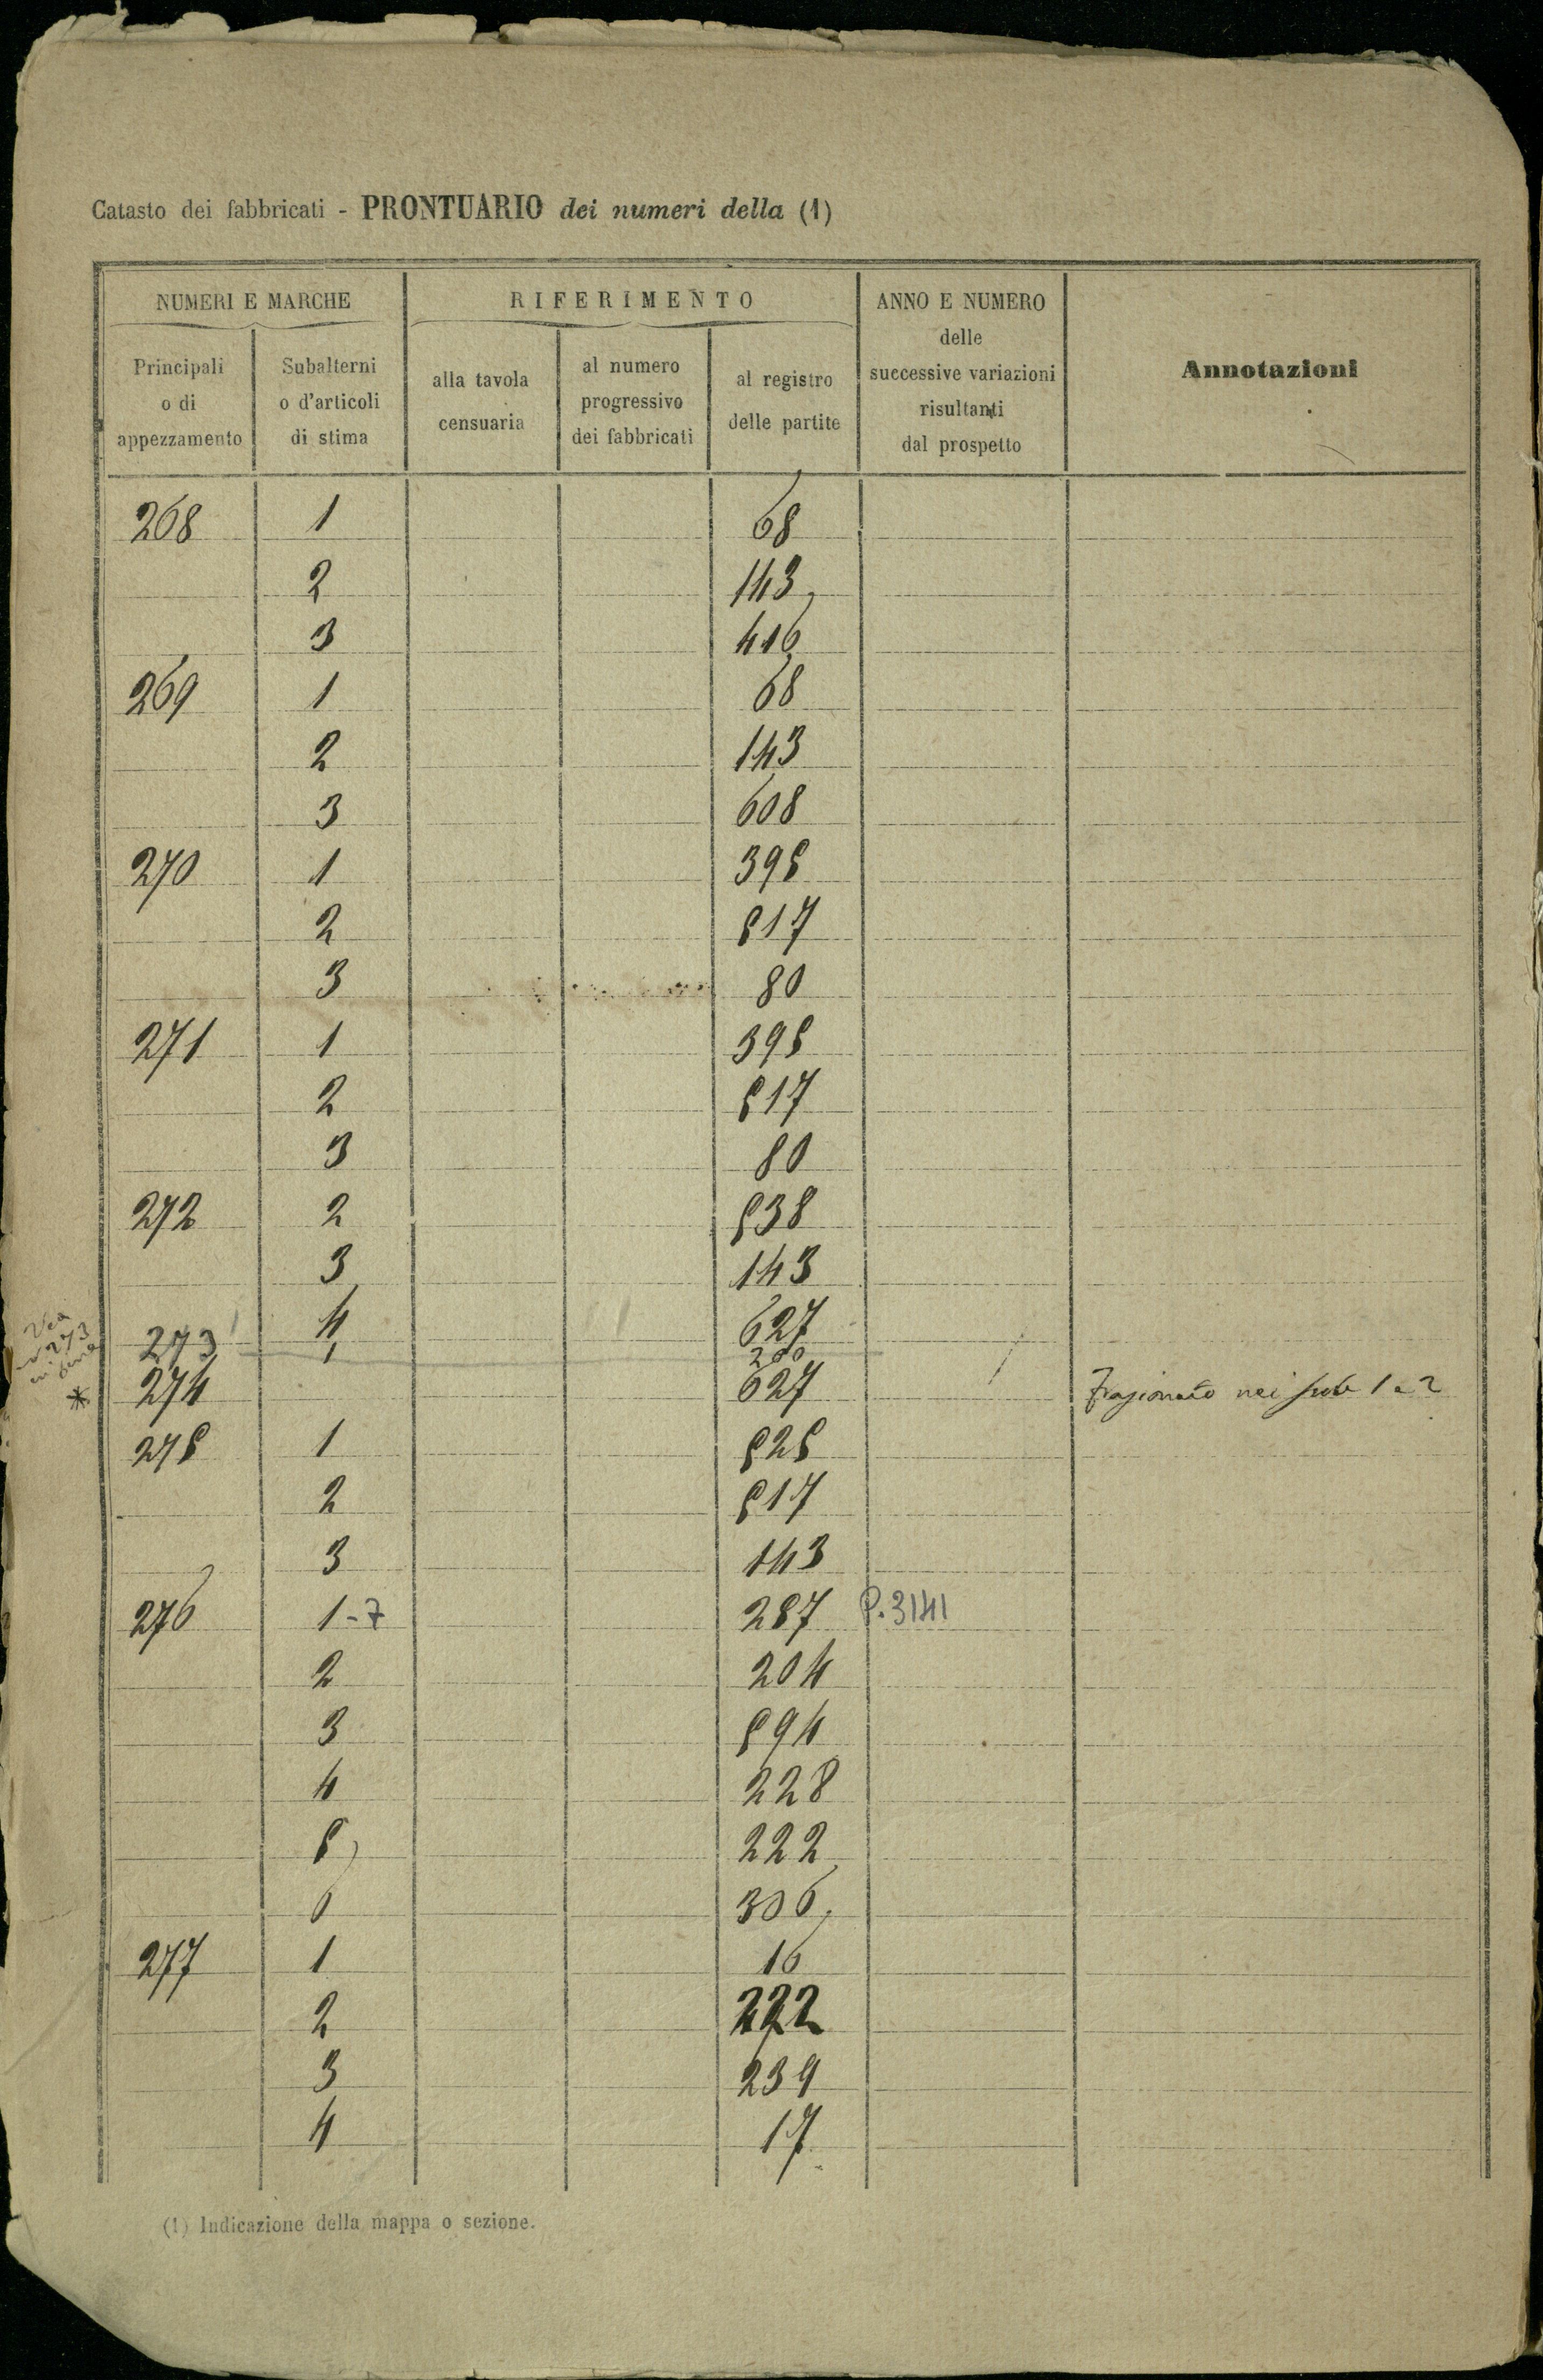 Catasto dei fabbricati - PRONTUARIO dei numeri della (1)
NUMERI E MARCHE
RIFERIMENTO
ANNO E NUMERO
delle
successive variazioni
risultanti
dal prospetto
Annotazioni
Principali
o di
appezzamento
Subalterni
o d'articoli
di stima
alla tavola
censuaria
al numero
progressivo
dei fabbricati
al registro
delle partite
268 1 68
2 143
3 416
269 1 68
2 143
3 608
270 1 395
2 517
3 80
271 1 395
2 517
3 80
272 2 538
3 143
4 627
273 1 200
* 274 627 Frazionato nei sub 1 e 2
275 1 525
2 517
3 143
276 1-7 257 P.3141
2 204
3 594
4 228
5 222
6 306
277 1 16
2 222
3 239
4 17
(1) Indicazione della mappa o sezione.